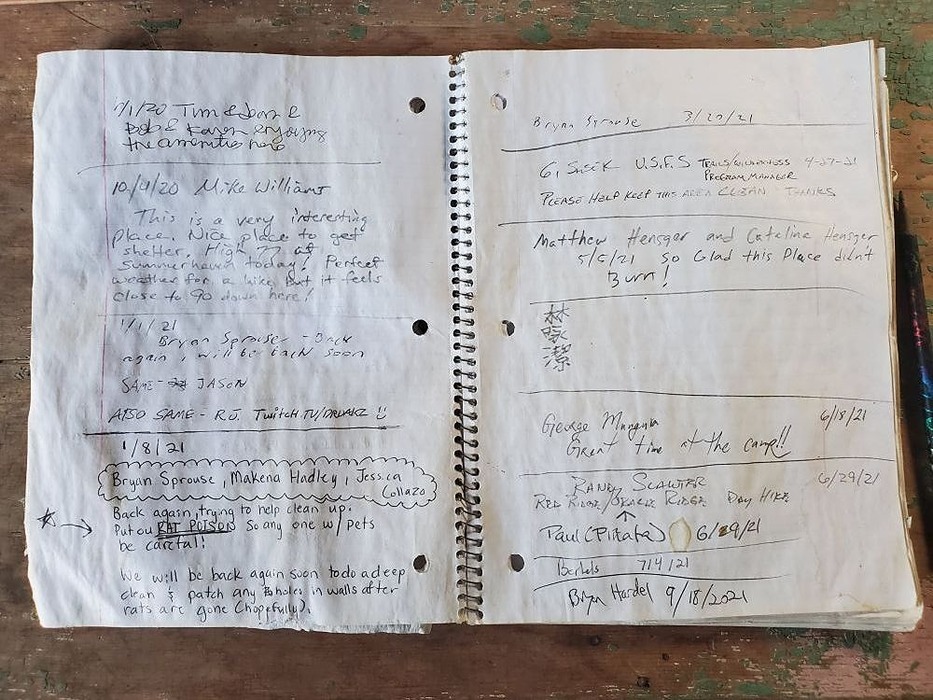 7/1/20 Tim & Joan &
Bob & Karen enjoying
the amenities here
10/4/20 Mike Williams
This is a very interesting
place. Nice place to get
shelter. High 77 at
Summerhaven today! Perfect
weather for a hike but it feels
close to 90 down here!
1/1/21
Bryan Sprouse - Back
again, will be back soon
SAME - JASON
ALSO SAME - R.J. Twitch.TV/
1/8/21
Bryan Sprouse, Makena Hadley, Jessica
Collazo
Back again, trying to help clean up.
Put out RAT POISON So any one w/ pets
be careful!
We will be back again soon to do a deep
clean & patch any holes in walls after
rats are gone (hopefully).
Bryan Sprouse 3/20/21
U.S.F.S TRAILS/WILDERNESS 4-27-21
PROGRAM MANAGER
PLEASE HELP KEEP THIS AREA CLEAN THANKS
Matthew Hensger and Cateline Hensger
5/5/21 So Glad this Place didn't
Burn!
林
詠
潔
George Munguia 6/18/21
Great time at the camp!!
RANDY SLAWTER 6/29/21
RED RIDGE/ORACLE RIDGE DAY HIKE
Paul (Piñata) 6/29/21
7/4/21
Bryan Hardel 9/18/2021